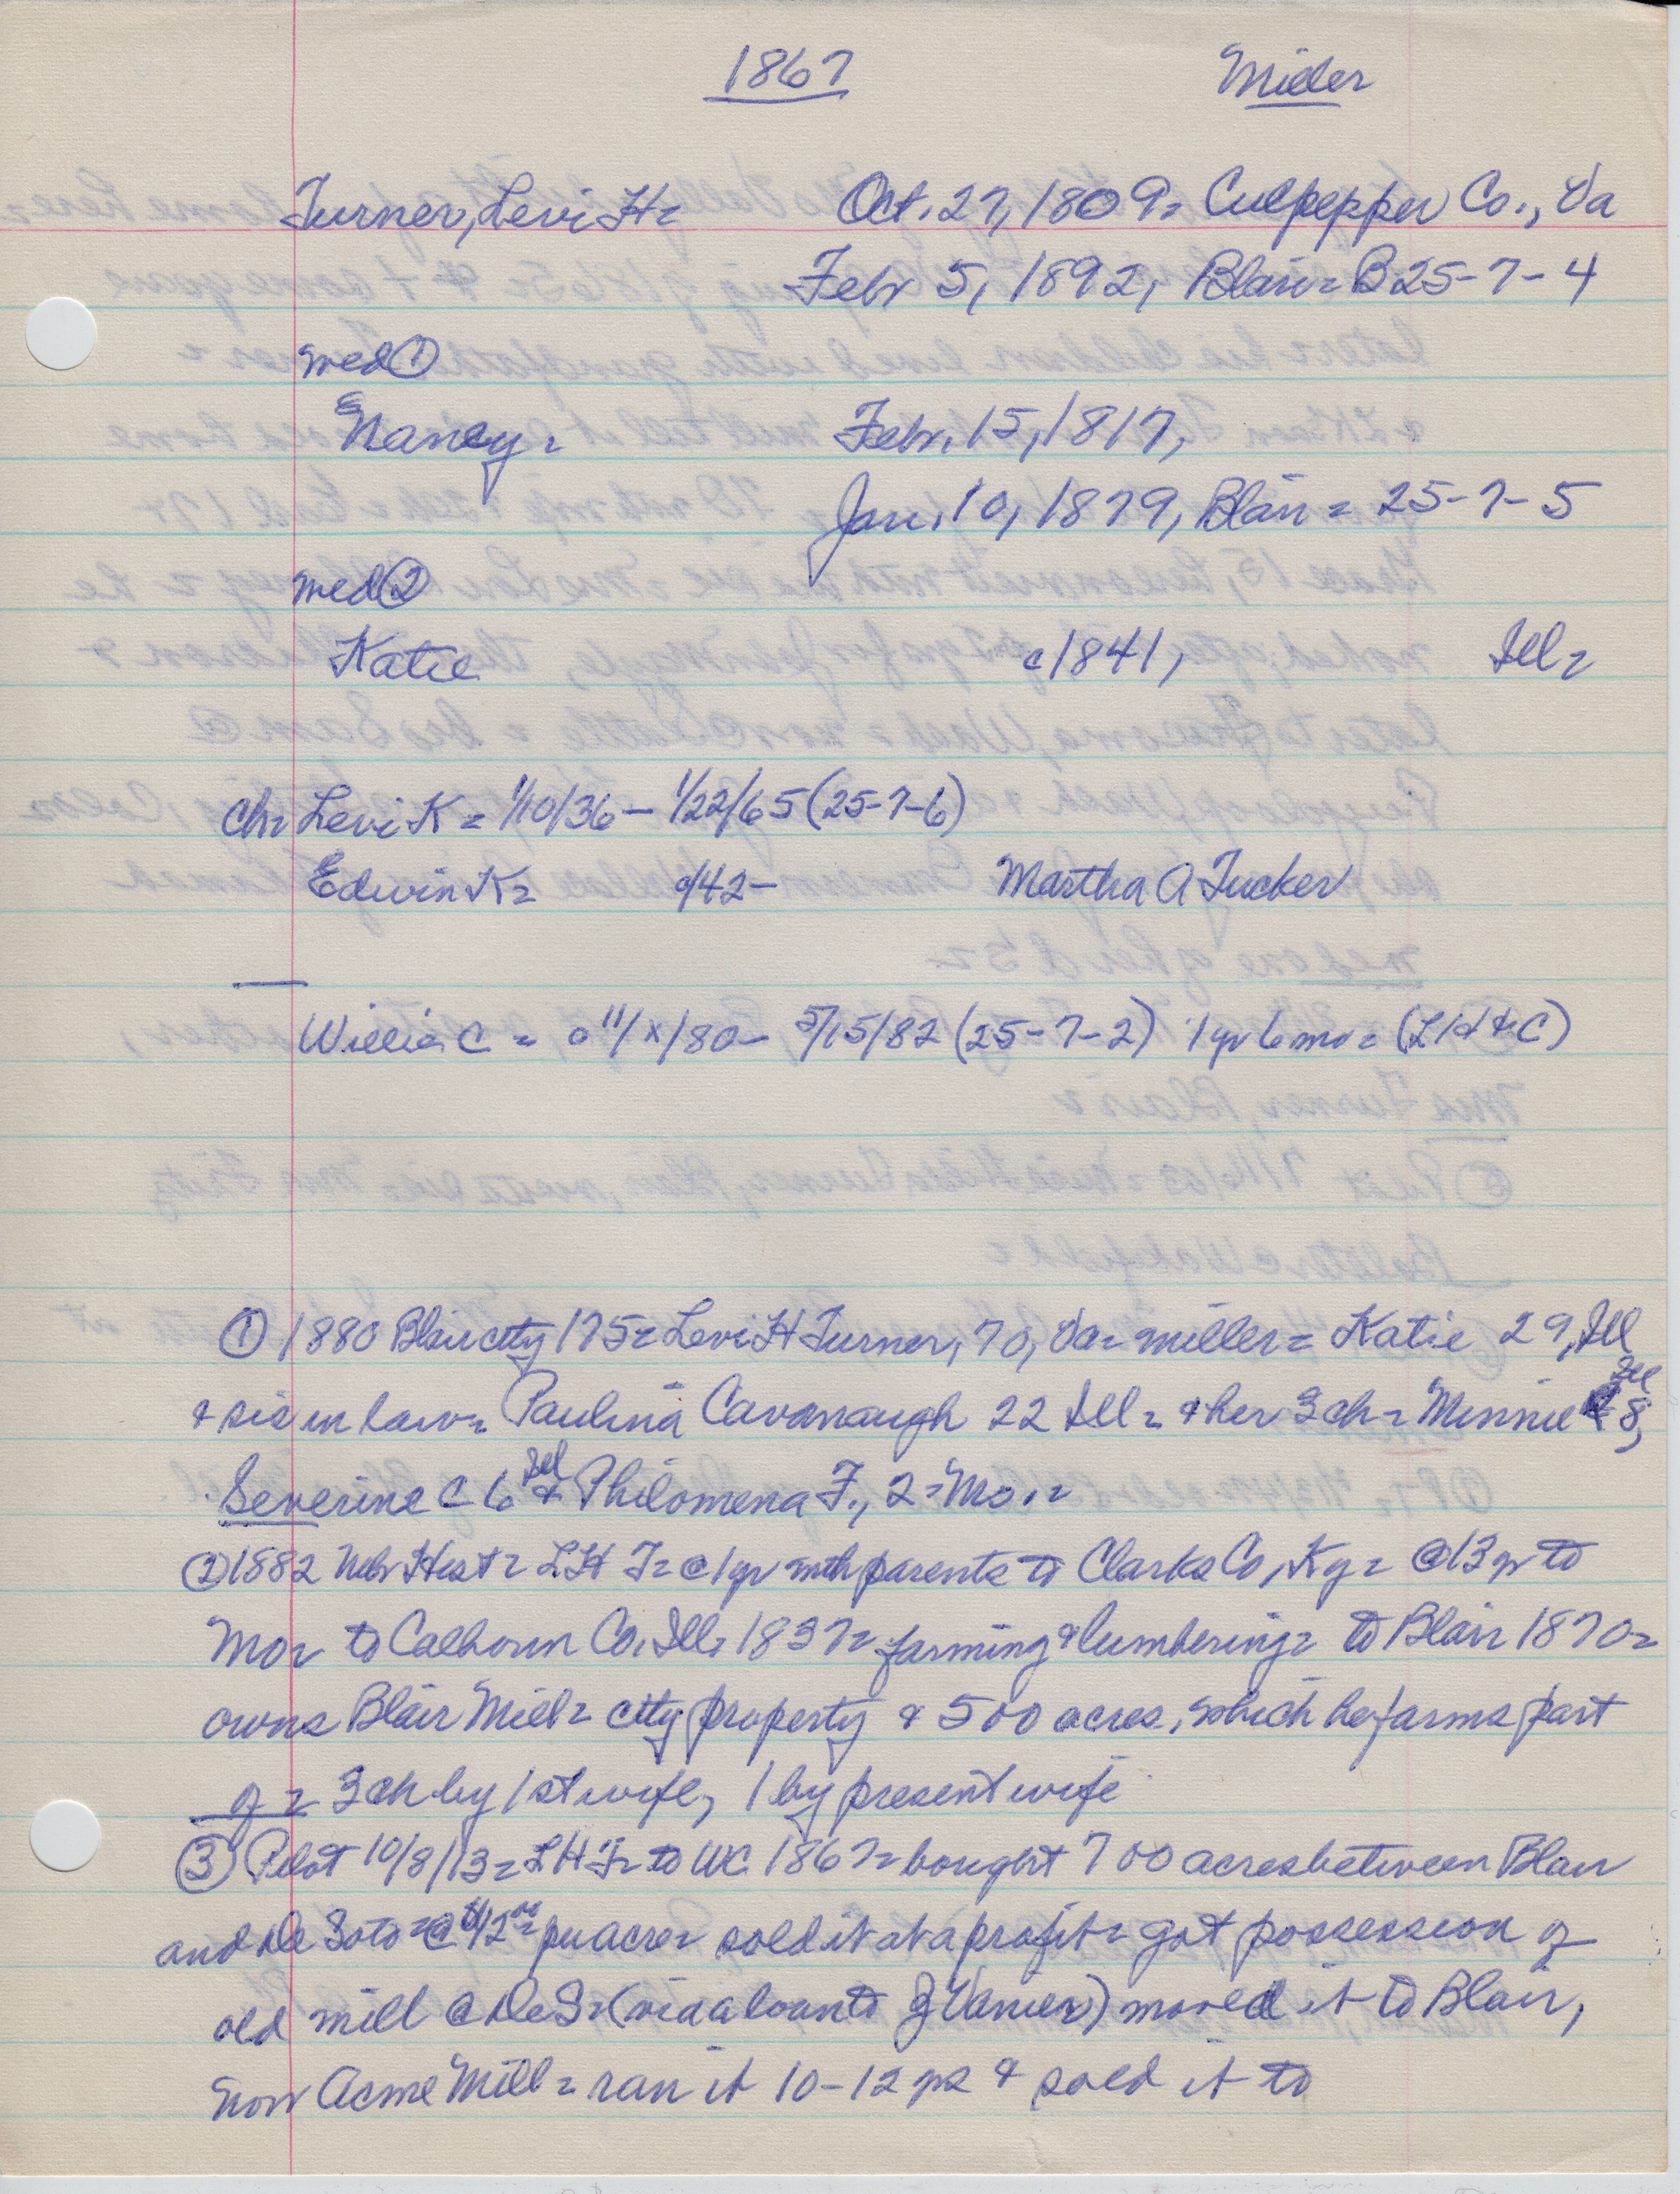 1867 Miller
Turner, Levi H= Oct. 27, 1809= Culpepper Co., Va
Febr 5, 1892, Blair= B25-7-4
med ①
Nancy= Febr. 15, 1817,
Jan. 10, 1879, Blair= 25-7-5
med ②
Katie c1841, Ill=
Ch= Levi K= 1/10/36 – 1/22/65 (25-7-6)
Edwin K= c/42 – Martha A Tucker
Willie C = 11/x/80 – 5/15/82 (25-7-2) 1 yr 6 mo= (LH & C)
① 1880 Blair city 175= Levi H Turner, 70, Va= miller= Katie 29, Ill
& sis in law= Paulina Cavanaugh 22 Ill= & her 3 ch= Minnie 8, Ill
Severine C 6 Ill & Philomena F., 2= Mo.=
② 1882 Nebr Hist= LH T= @ 1 yr with parents to Clarks Co, Ky= @ 13 yr to
Mo= to Calhoun Co. Ill= 1837= farming & lumbering= to Blair 1870=
owns Blair Mill= city property & 500 acres, which he farms part
of= 3 ch by 1st wife, 1 by present wife
③ Pilot 10/8/13= LH T= to WC 1867= bought 700 acres between Blair
and De Soto= @ $12 per acre= sold it at a profit= got possession of
old mill @ DeS= (via a loan to J Vanier) moved it to Blair,
now Acme Mill= ran it 10-12 yrs & sold it to